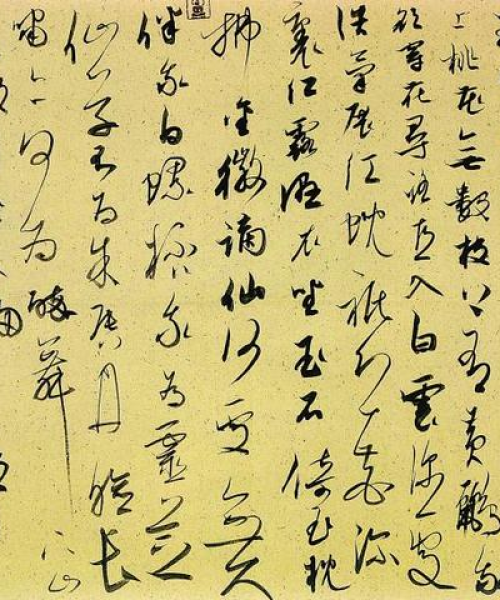 上桃花無數枝上有黃鸝我
欲穿花尋路直入白雲深處
浩氣展紅蜺祇恐花深
裏紅露濕人衣坐玉石倚玉枕
拂金徽謫仙何處無人
伴我白螺杯我為靈芝
仙草不為朱唇丹臉長
嘯亦何為醉舞下山